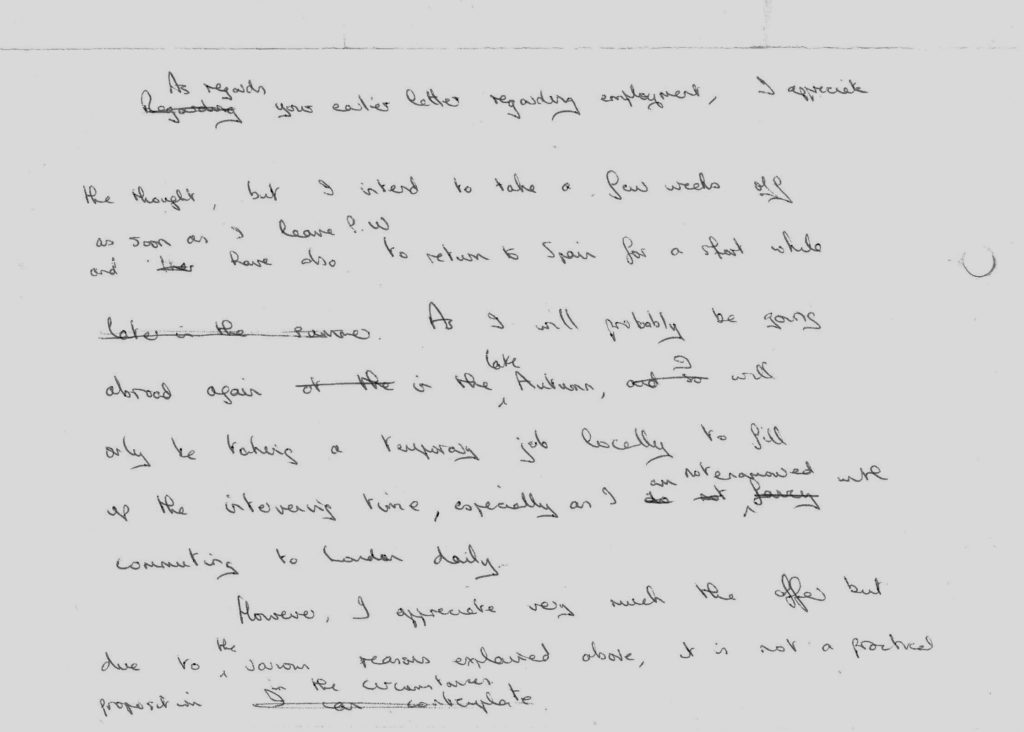 As regards
Regarding your earlier letter regarding employment, I appreciate
the thought, but I intend to take a few weeks off
as soon as I leave P.W
and have also to return to Spain for a short while
later in the summer. As I will probably be going
late
abroad again at the in the Autumn, and so I will
only be taking a temporary job locally to fill
am not enamoured
up the intervening time, especially as I do not fancy with
commuting to London daily.
However, I appreciate very much the offer but
the
due to various reasons explained above, it is not a practical
in the circumstances
proposition I can contemplate.